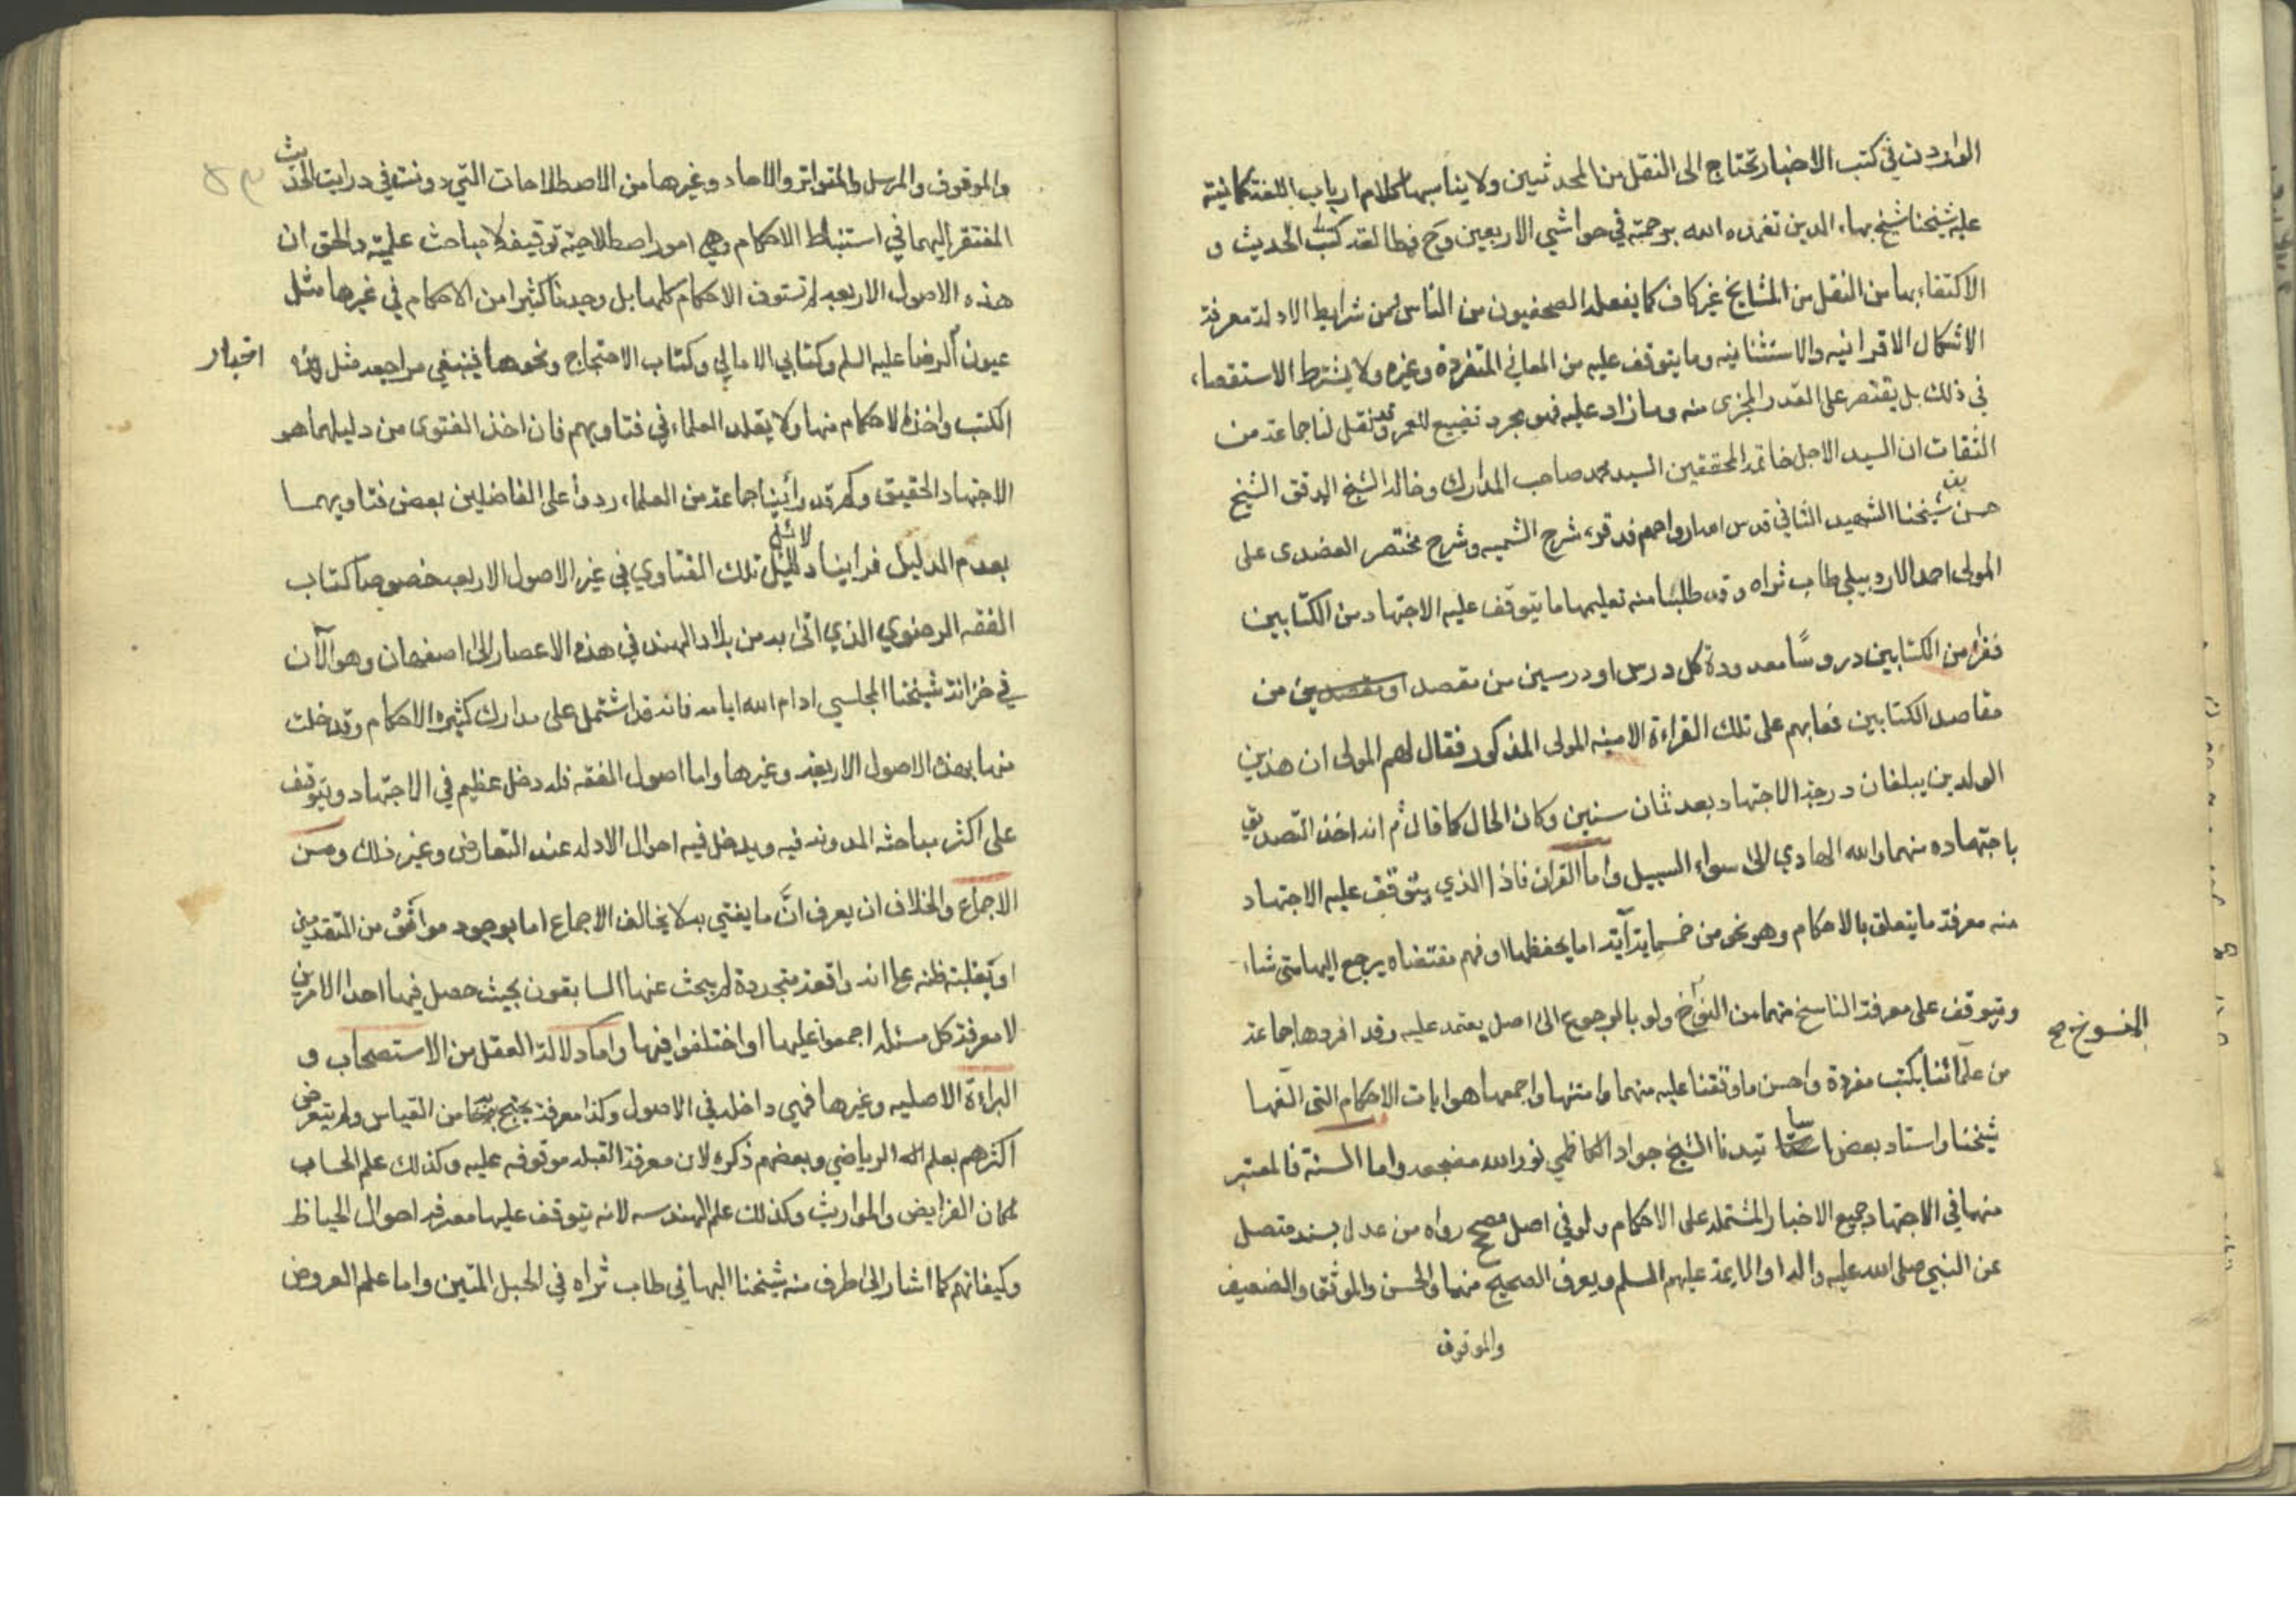 الواردت في كتب الاخبار تحتاج الى النقل من المحدثين ولا يناسبها كلام ارباب اللغة كما نبّه
عليه شيخنا شيخ بهاء الدين تغمده الله برحمته في حواشي الاربعين وح فمطالعة كتب الحديث و
الاكتفاء بها من النقل من المشايخ غير كاف كما يفعله الصحفيون من الناس ومن شرايط الادلة معرفة
الاشكال الاقترانيه والاستثنائيه وما يتوقف عليه من المعاني المتفردة وغيره ولا يشترط الاستقصاء
في ذلك بل يقتصر على القدر المجزى منه وما زاد عليه فهو مجرد تضييع للعمر وقد نقل لنا جماعة من
الثقات ان السيد الاجل خاتمة المحققين السيد محمد صاحب المدارك وخاله الشيخ المدقق الشيخ
حسن بن شيخنا الشهيد الثاني قدس الله ارواحهم قد قرء شرح الشمسيه وشرح مختصر العضدى على
المولى احمد الاردبيلي طاب ثراه وقد طلبا منه تعليمهما ما يتوقف عليه الاجتهاد من الكتابين
فقراء من الكتابين دروسًا معدودة كل درس او درسين من مقصد او مقصدين من
مقاصد الكتابين فعابهم على تلك القراءة لامينه المولى المذكور فقال لهم المولى ان هذين
الولدين يبلغان درجة الاجتهاد بعد ثمان سنين وكان الحال كما قال ثم انه اخذ التصديق
باجتهاده منهما والله الهادي الى سواء السبيل واما القران فاذا الذي يتوقف عليه الاجتهاد
منه معرفة ما يتعلق بالاحكام وهو نحو من خمسماية آية اما بحفظها او فهم مقتضاه يرجع اليها متى شاء
ويتوقف على معرفة الناسخ منهما من المنسوخ ولو بالرجوع الى اصل يعتمد عليه وقد افردها جماعة
المنسوخ صح
من علمائنا بكتب مفردة واحسن ما وقفنا عليه منهما وامتنها واجمعها هو ايات الاحكام التى الفها
شيخنا واستاد بعض اساتيدنا الشيخ جواد الكاظمي نور الله مضجعه واما السنة فالمعتبر
منها في الاجتهاد جميع الاخبار المشتمله على الاحكام ولو في اصل مصحح رواه من عدل بسند متصل
عن النبي صلى الله عليه واله او الايمة عليهم السلم ويعرف الصحيح منها والحسن والموثق والضعيف
والموقوف
والموقوف والمرسل والمتواتر والاحاد وغيرها من الاصطلاحات التي دونت في درايت الحديث
المفتقر اليها في استنباط الاحكام وهي امور اصطلاحية توقيفة لا مباحث علمية والحق ان
هذه الاصول الاربعه لم تستوف الاحكام كلها بل وجدنا كثيرا من الاحكام في غيرها مثل
اخبار
عيون الرضا عليه السلم وكتابي الامالي وكتاب الاحتجاج ونحوها فينبغي مراجعه مثل هذه
الكتب واخذ الاحكام منها ولا يقلد العلماء في فتاويهم فان اخذ الفتوى من دليلها هو
الاجتهاد الحقيق وكم قد رأينا جماعة من العلماء ردوا على الفاضلين بعض فتاويهما
بعدم الدليل فراينا دلائل تلك الفتاوي في غير الاصول الاربعه خصوصا كتاب
الفقه الرضوي الذي اتى به من بلاد الهند في هذه الاعصار الى اصفهان وهو الآن
في خزانة شيخنا المجلسي ادام الله ايامه فانه قد اشتمل على مدارك كثيره الاحكام وقد خلت
منها بهذه الاصول الاربعه وغيرها واما اصول الفقه فله دخل عظيم في الاجتهاد ويتوقف
على اكثر مباحثه المدونه فيه ويدخل فيه احوال الادله عند التعارض وغير ذلك ومن
الاجماع والخلاف ان يعرف انّ ما يفتي به لا يخالف الاجماع اما بوجود موافق من المتقدمين
او بغلبة ظنه على انه واقعة متجددة لم يبحث عنها السابقون بحيث حصل فيها احد الامرين
لا معرفة كل مسئله اجمعوا عليها او اختلفوا فيها واما دلالة العقل من الاستصحاب و
البراءة الاصليه وغيرها فهي داخله في الاصول وكذا معرفة يحتج به من القياس ولم يتعرض
اكثرهم بعلم الرياضي وبعضهم ذكره لان معرفة القبله موقوفه عليه وكذلك علم الحساب
لمكان الفرايض والمواريث وكذلك علم الهندسه لانه يتوقف عليها معرفه احوال الحياظ
وكيفاتهم كما اشار الى طرف منه شيخنا البهائي طاب ثراه في الحبل المتين واما علم العروض